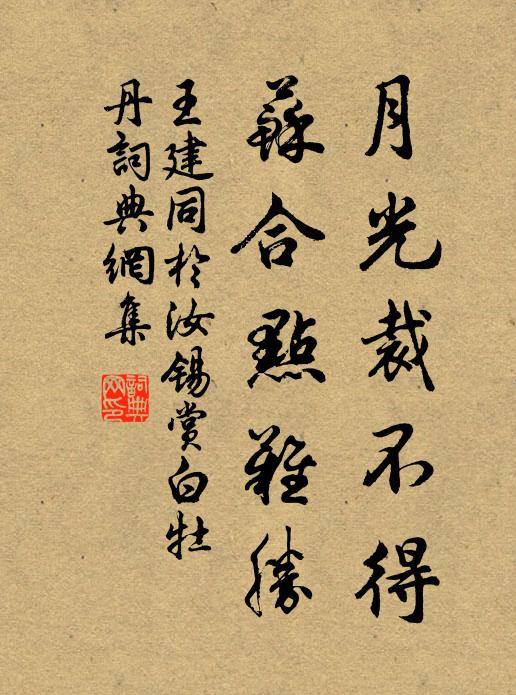 月光裁不得
蘇合點難勝
王建同於汝錫賞白牡
丹詞典網集
詞典网印